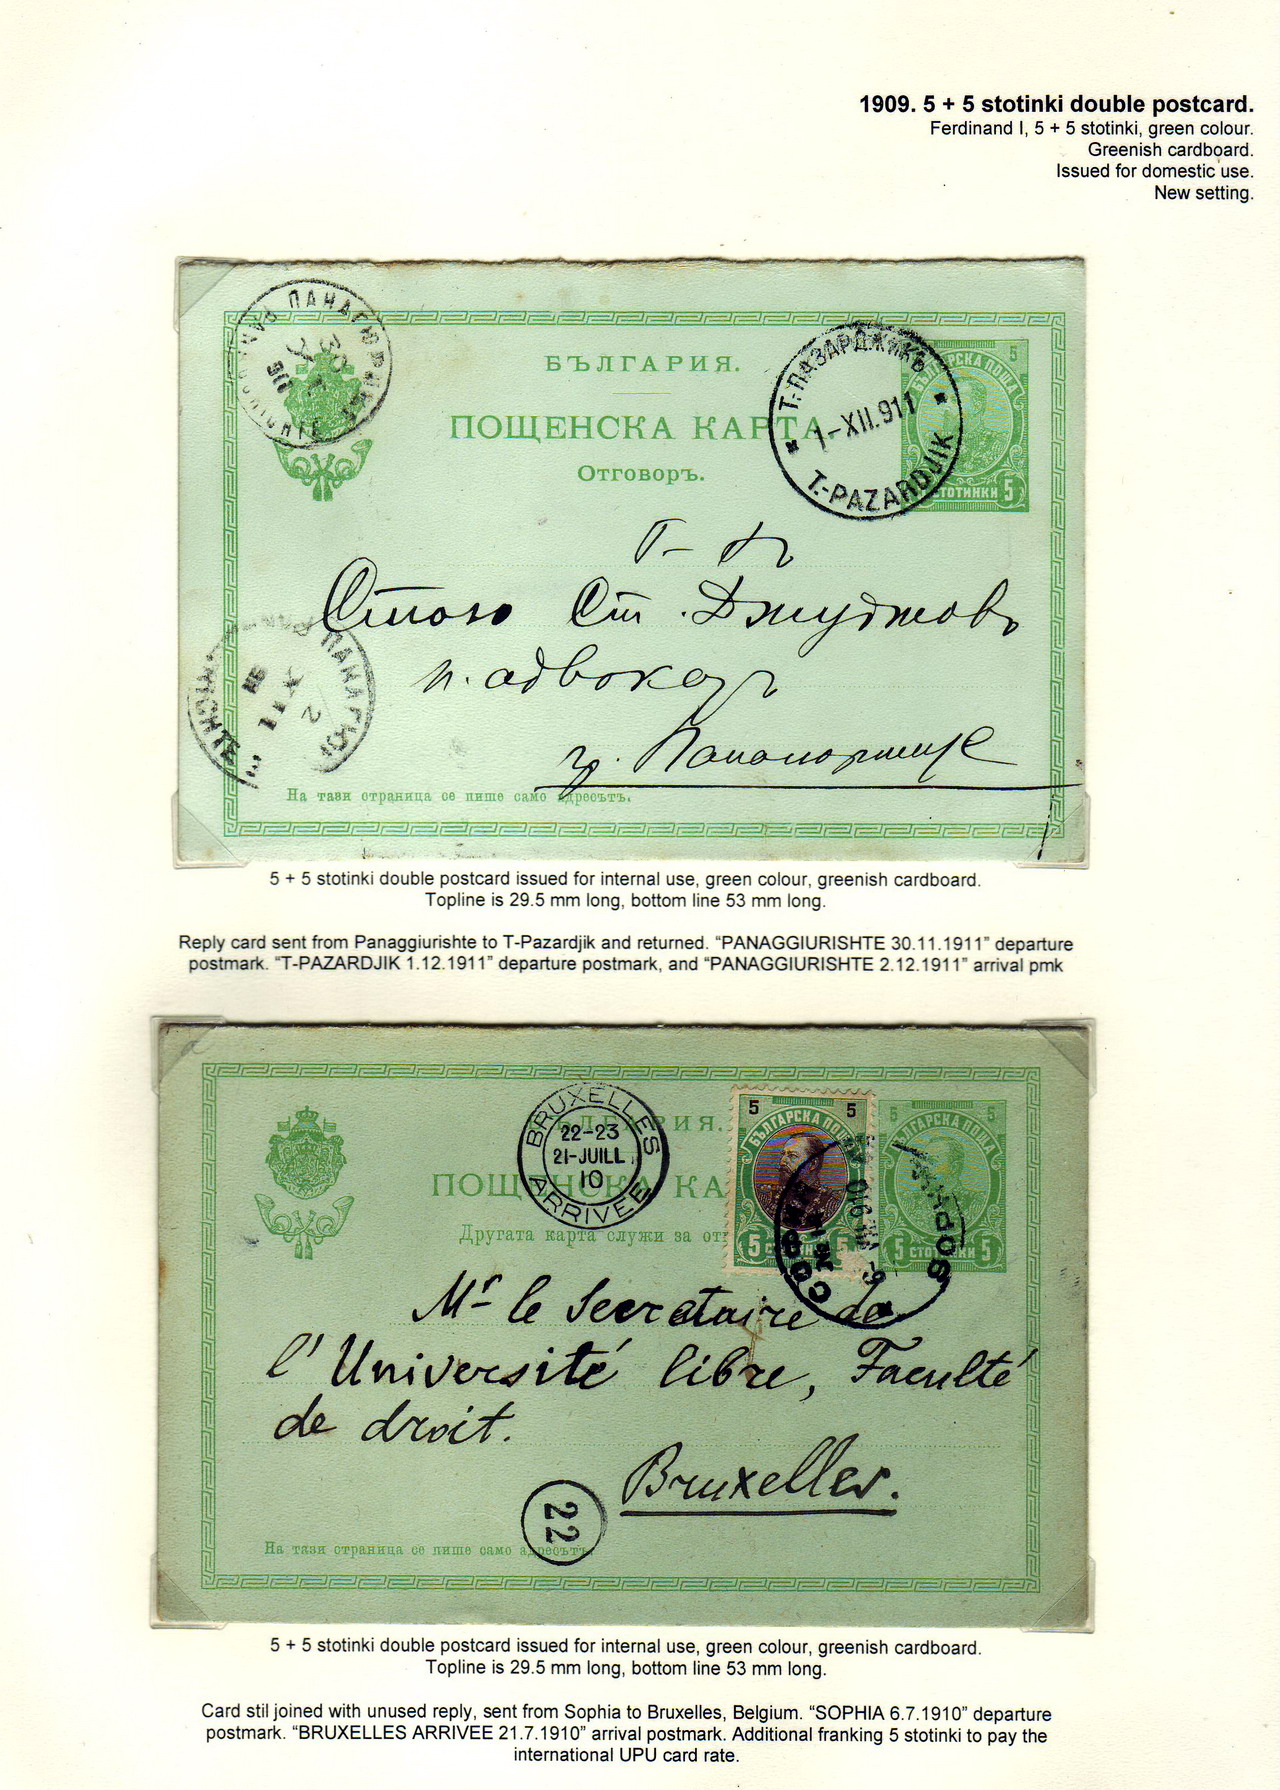 1909. 5 + 5 stotinki double postcard.
Ferdinand I, 5 + 5 stotinki, green colour.
Greenish cardboard.
Issued for domestic use.
New setting.
ПАНАГЮРИЩЕ
30
XI
911
БЪЛГАРИЯ.
ПОЩЕНСКА КАРТА
Отговоръ.
Т.-ПАЗАРДЖИКЪ
1-XII.911
T.-PAZARDJIK
5
БЪЛГАРСКА ПОЩА
СТОТИНКИ 5
Г-нъ
Стою Ст. Джуджовъ
п. адвокатъ
гр.
На тази страница се пише само адресътъ.
5 + 5 stotinki double postcard issued for internal use, green colour, greenish cardboard.
Topline is 29.5 mm long, bottom line 53 mm long.
Reply card sent from Panaggiurishte to T-Pazardjik and returned. “PANAGGIURISHTE 30.11.1911” departure
postmark. “T-PAZARDJIK 1.12.1911” departure postmark, and “PANAGGIURISHTE 2.12.1911” arrival pmk
BRUXELLES
22-23
21-JUILL
10
ARRIVEE
ПОЩЕНСКА КА
Другата карта служи за от
5 5
БЪЛГАРСКА ПОЩА
5 СТОТИНКИ 5
5
СТОТИНКИ 5
Mr le Secrétaire de
l'Université libre, Faculté
de droit.
Bruxelles.
22
На тази страница се пише само адресътъ.
5 + 5 stotinki double postcard issued for internal use, green colour, greenish cardboard.
Topline is 29.5 mm long, bottom line 53 mm long.
Card stil joined with unused reply, sent from Sophia to Bruxelles, Belgium. “SOPHIA 6.7.1910” departure
postmark. “BRUXELLES ARRIVEE 21.7.1910” arrival postmark. Additional franking 5 stotinki to pay the
international UPU card rate.